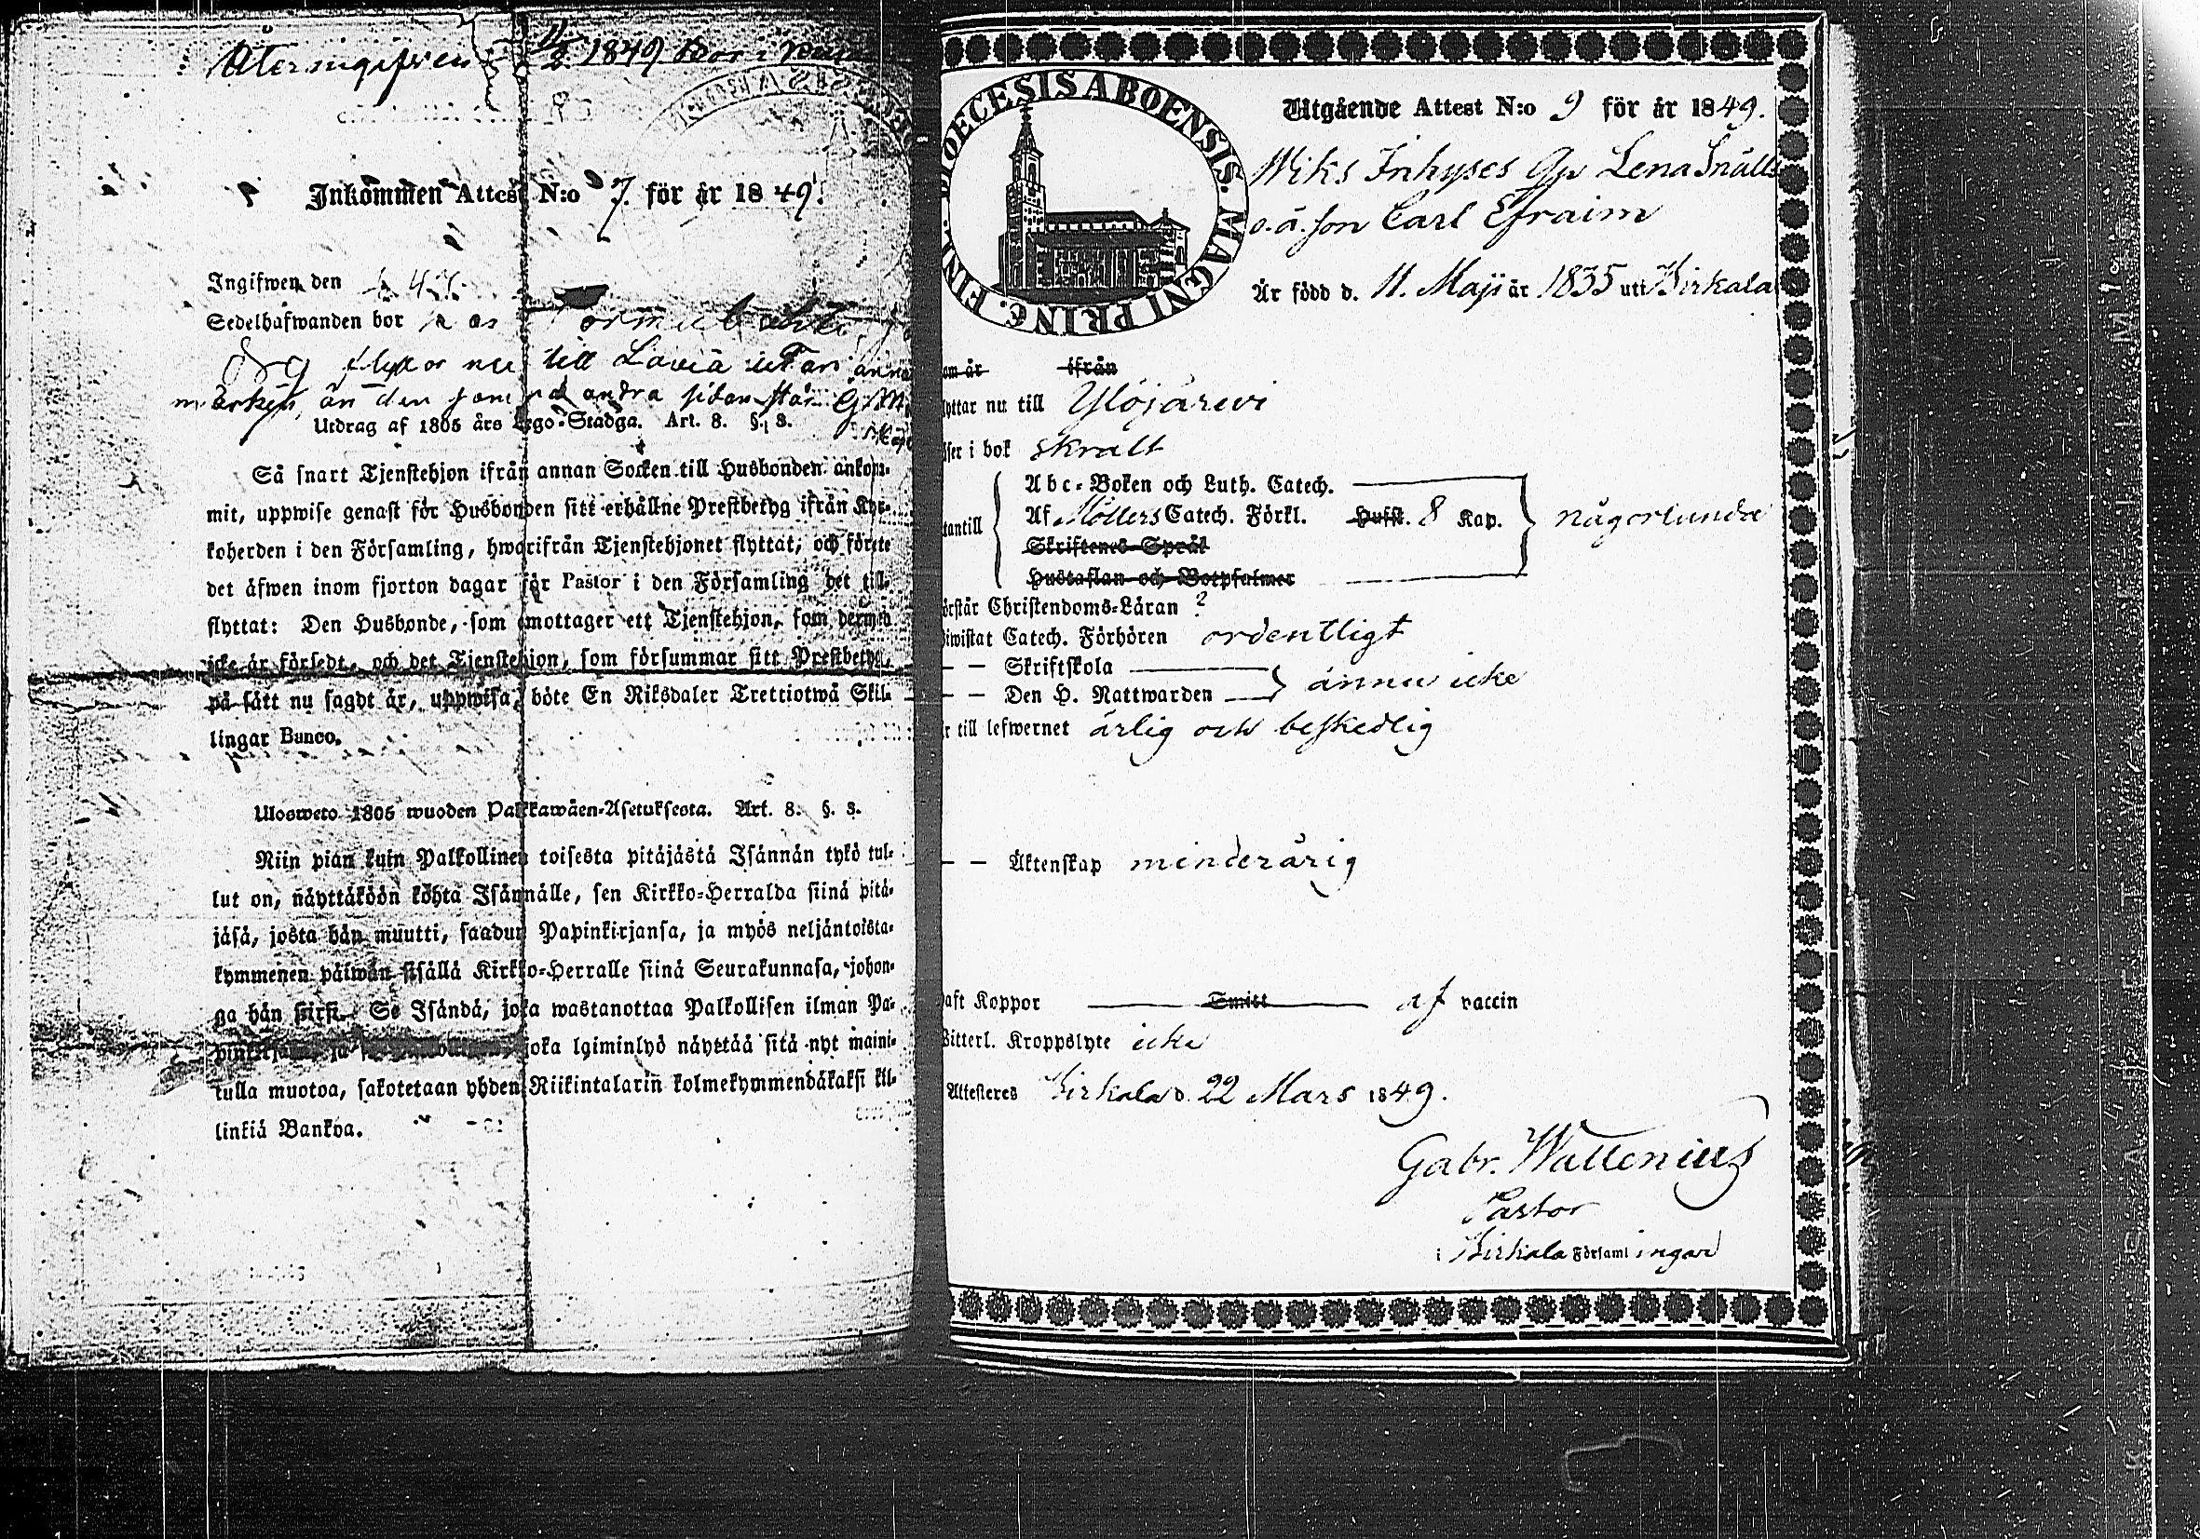 Återingifven 11/2 1849 Bor i
Inkommen Attest N:o 7. för år 1849.
Ingifwen den
Sedelhafwanden bor
och flyttar nu till Lavia utan
märken, än den som på andra sidan står. GM
Utdrag af 1805 års Lego-Stadga. Art. 8. §. 3.
Så snart Tjenstehjon ifrån annan Socken till Husbonden ankom-
mit, uppwise genast för Husbonden sitt erhållne Prestbetyg ifrån Kyr-
koherden i den Församling, hwarifrån Tjenstehjonet flyttat, och förete
det äfwen inom fjorton dagar för Pastor i den Församling det till-
flyttat: Den Husbonde, som emottager ett Tjenstehjon, som dermed
icke är försedt, och det Tjenstehjon, som försummar sitt Prestbetyg,
på sätt nu sagdt är, uppwisa, böte En Riksdaler Trettiotwå Skil-
lingar Banco.
Ulosweto 1805 wuoden Palkkawäen-Asetuksesta. Art. 8. §. 3.
Niin pian kuin Palkollinen toisesta pitäjästä Isännän tykö tul-
lut on, näyttäköön kohta Isännälle, sen Kirkko-Herralda siinä pitä-
jäsä, josta hän muutti, saadun Papinkirjansa, ja myös neljäntoista-
kymmenen päiwän sisällä Kirkko-Herralle siinä Seurakunnasa, johon-
ga hän siirsi. Se Isändä, joka wastanottaa Palkollisen ilman Pa-
pinkirjata, ja se joka lyiminlyö näyttää sitä nyt maini-
tulla muotoa, sakotetaan yhden Riikintalarin kolmekymmendäkaksi kil-
linkiä Bankoa.
DIOECESIS ABOENSIS. MAGNI PRINC. FINL.
Utgående Attest N:o 9 för år 1849.
Wiks Inhyses Lena Snälls
o. ä. son Carl Efraim
Är född d. 11. Maji år 1835 uti Birkala
om år ifrån
lyttar nu till Ylöjärvi
äser i bok skralt
Abc-Boken och Luth. Catech.
utantill Af Möllers Catech. Förkl. Hufst. 8 Kap. någorlunda
Skriftenes Språk
Hustaflan och Botpsalmer
örstår Christendoms-Läran ?
Biwistat Catech. Förhören ordentligt
— — Skriftskola
— — Den H. Nattwarden ännu icke
r till lefwernet ärlig och beskedlig
— — Äktenskap minderårig
haft Koppor Smitt af vaccin
Witterl. Kroppslyte icke
Attesteres Birkala d. 22 Mars 1849.
Gabr. Wallenius
Pastor
i Birkala Församlingar